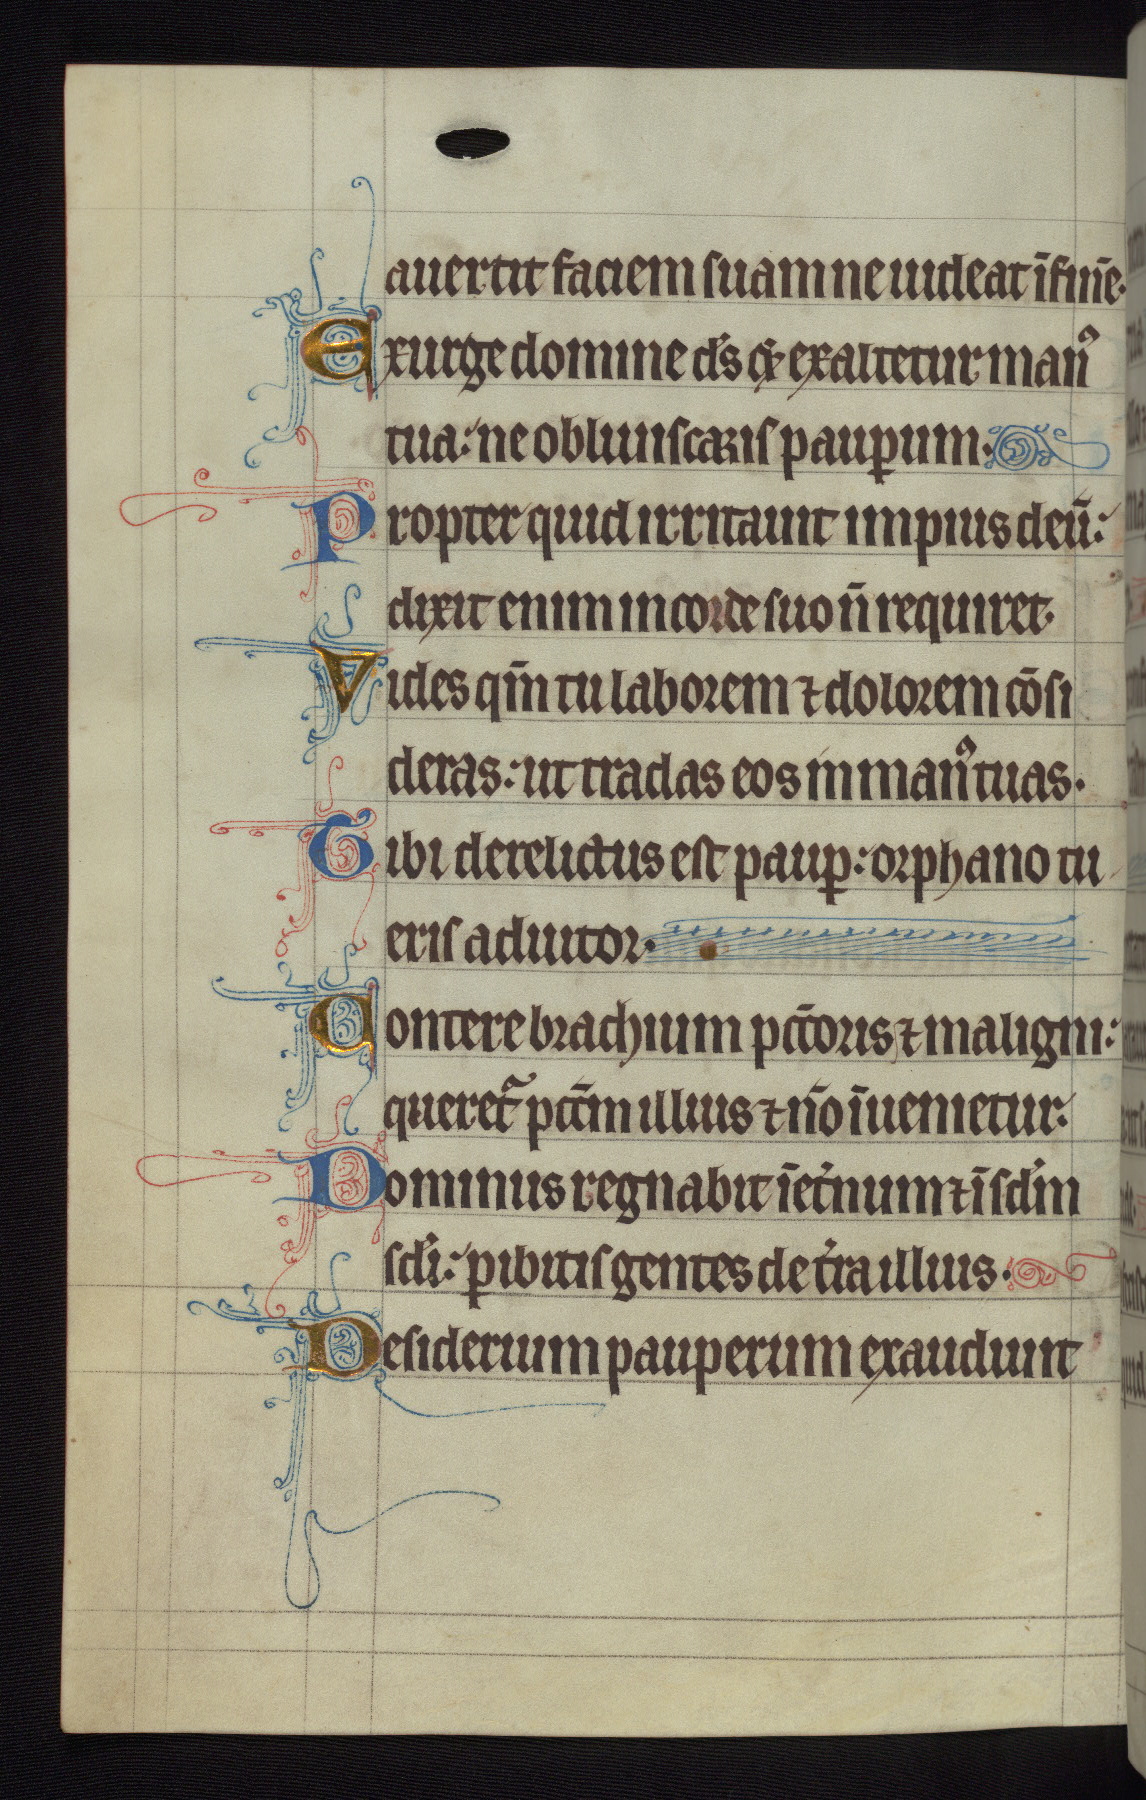 auertit faciem suam ne uideat ī finē·
Exurge domine ds̄ ⁊ exaltetur manꝰ
tua: ne obliuiscaris paupꝑum·
Propter quid irritauit impius deū:
dixit enim in corde suo n̄ requiret·
Vides qm̄ tu laborem ⁊ dolorem cōsi
deras: ut tradas eos in manꝰ tuas·
Tibi derelictus est paup̱: orphano tu
eris adiutor·
Contere brachium pctōris ⁊ maligni:
queret᷑ pctm̄ illius ⁊ nō īuenietur·
Dominus regnabit ī et̓num ⁊ ī sc̄lm
sc̄li: ꝑibitis gentes de t̓ra illius·
Desiderium pauperum exaudiuit